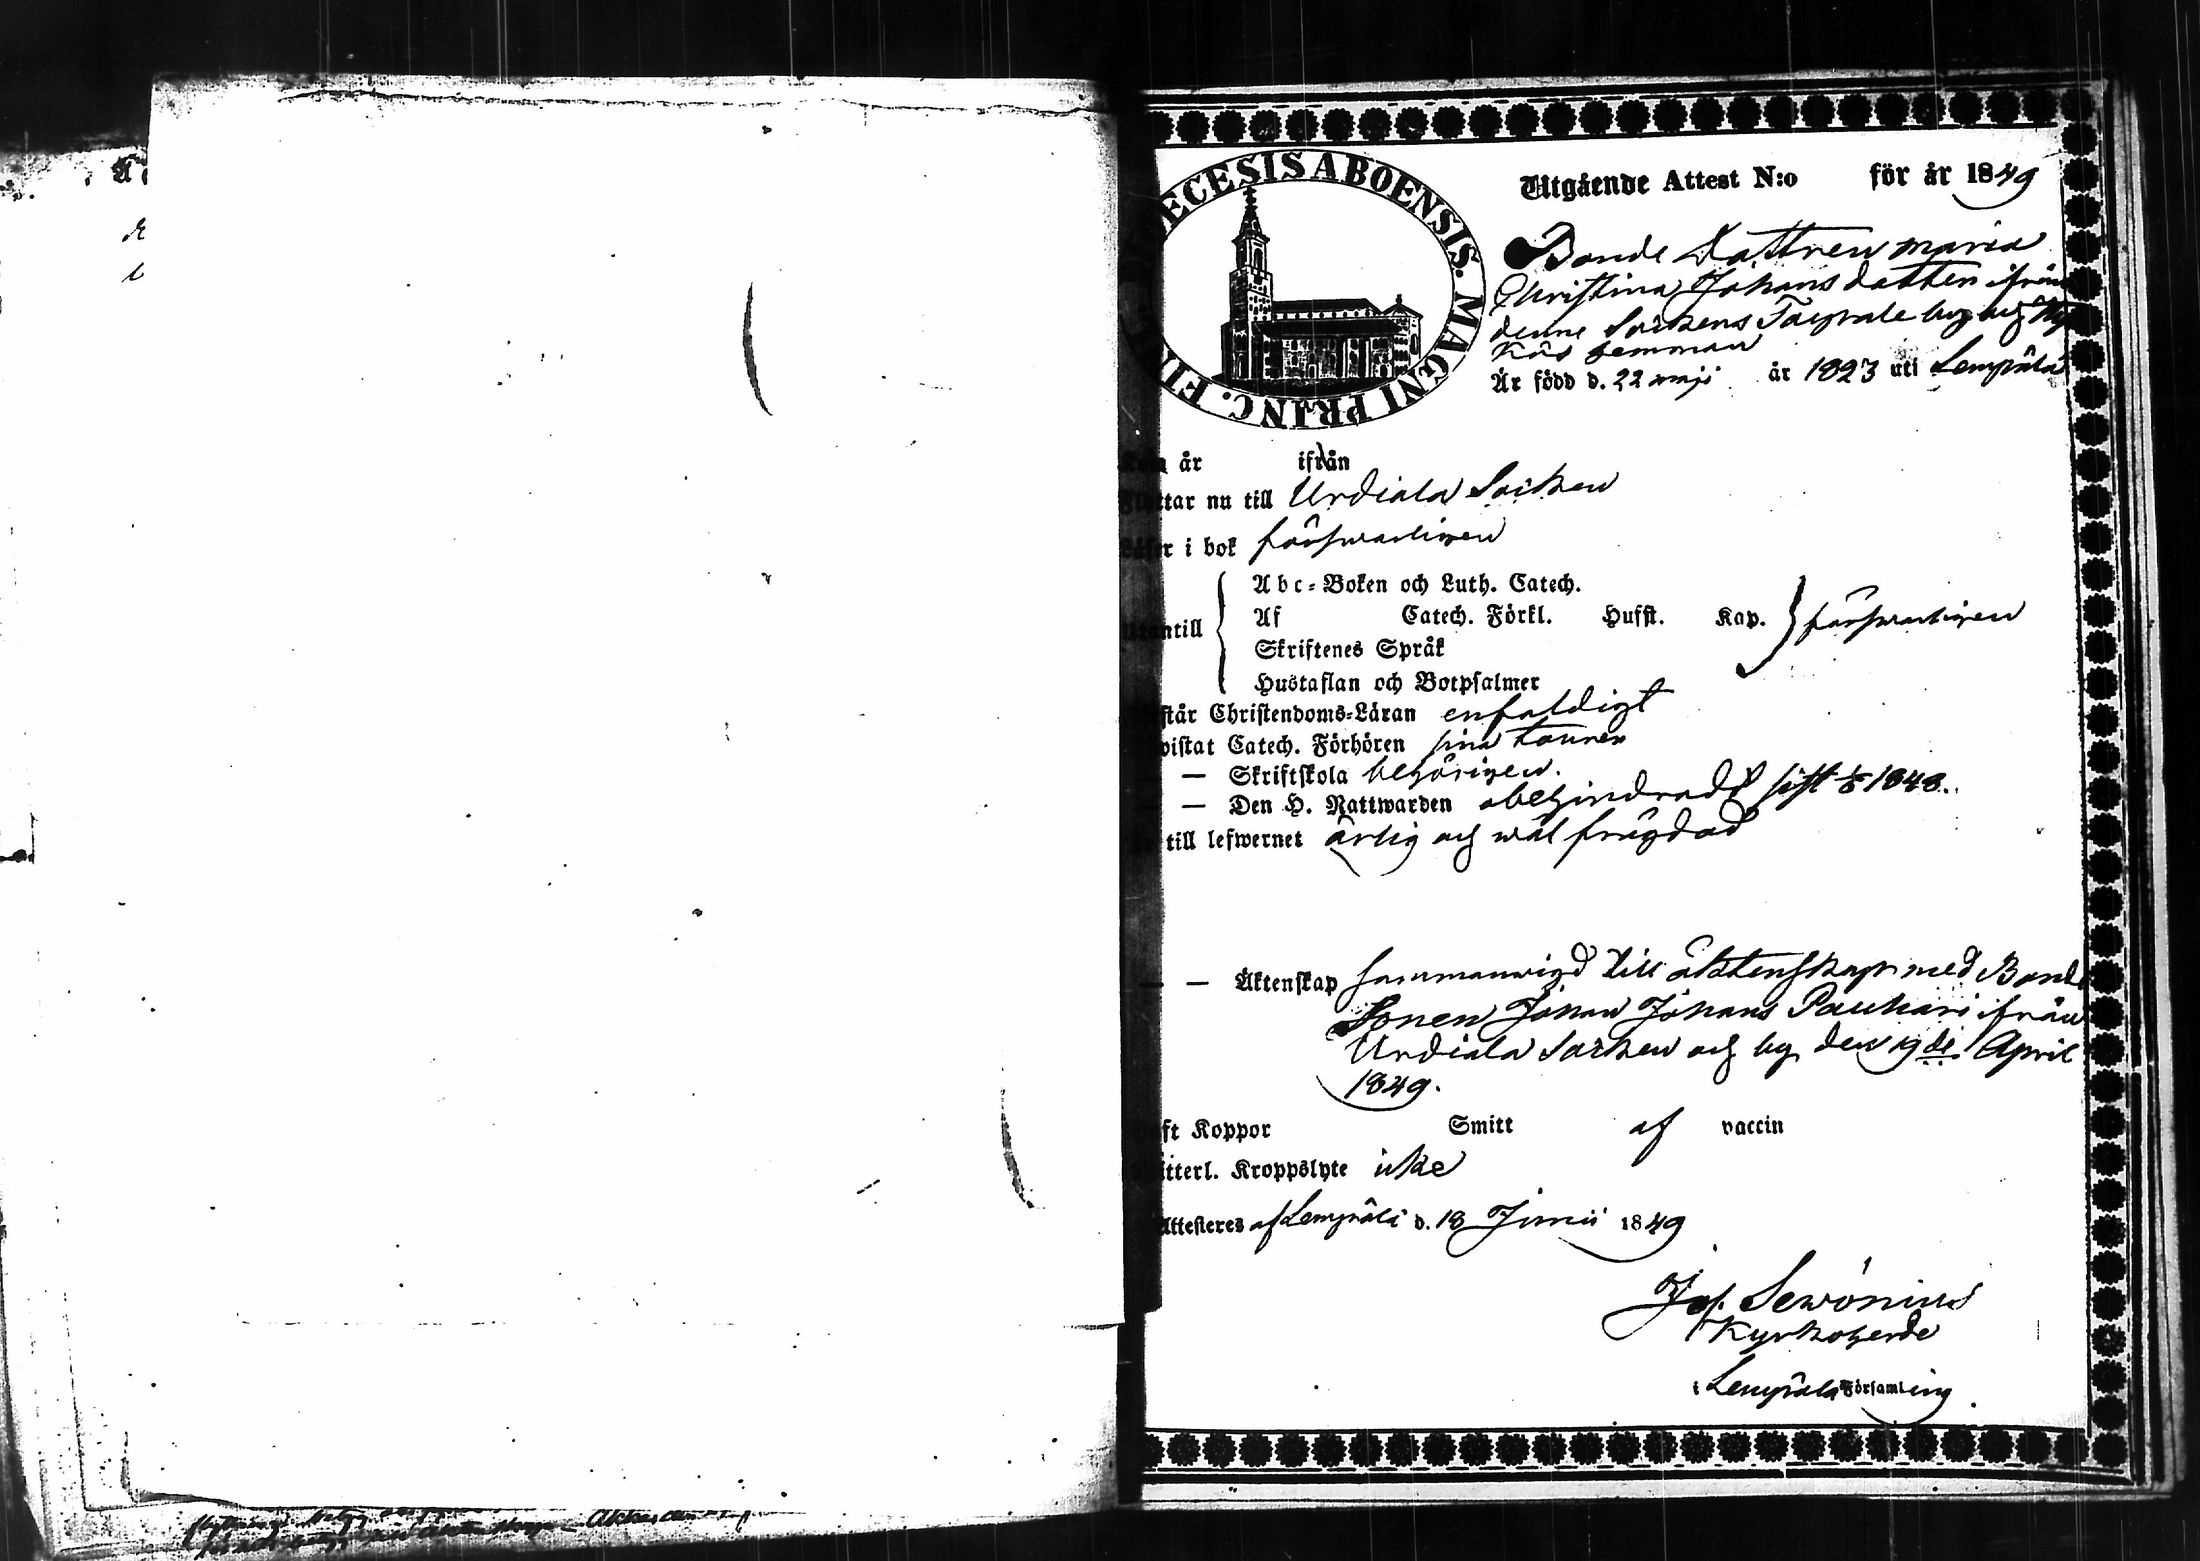 DIOECESIS ABOENSIS. MAGNI PRINC. FINL.
Utgående Attest N:o för år 1849
Bonde Dottren Maria
Christina Johans dotter ifrån
denne Sockens Taipale by och
Är född d. 22 maji år 1823 uti Lempälä
år ifrån
Flyttar nu till Urdiala Socken
Läser i bok försvarligen
Abc-Boken och Luth. Catech.
Utantill Af Catech. Förkl. Husst. Kap. försvarligen
Skriftenes Språk
Hustaflan och Botpsalmer
står Christendoms-Läran enfaldigt
vistat Catech. Förhören sina tourer
— Skriftskola behörigen.
— Den H. Nattwarden obehindradt sist 1848.
till lefwernet ärlig och wäl frägdad
— — Äktenskap sammanwigd till äktenskap med Bonde
Sonen Johan Johans Pauhari ifrån
Urdiala Socken och by den 19de April
1849.
Haft Koppor Smitt af vaccin
itterl. Kroppslyte icke
Attesteras af Lempälä d. 18 Junii 1849
Jos. Sewonius
Kyrkoherde
i Lempälä Församling